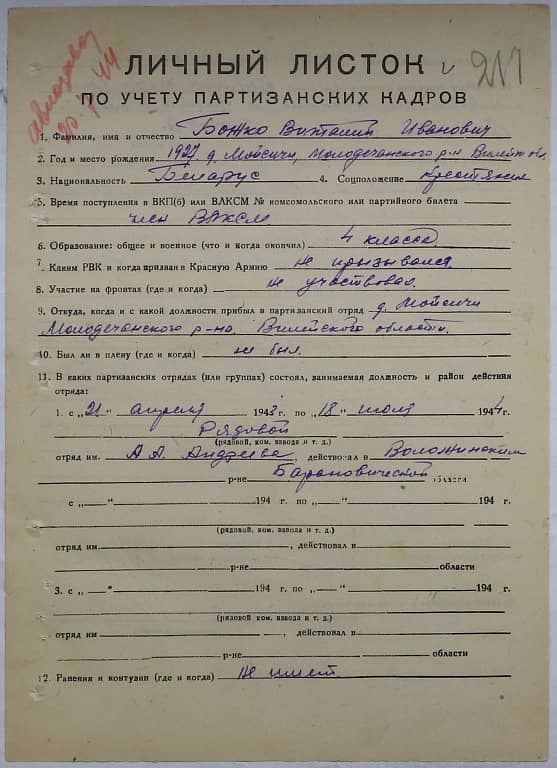 ЛИЧНЫЙ ЛИСТОК
217
ПО УЧЕТУ ПАРТИЗАНСКИХ КАДРОВ
1. Фамилия, имя и отчество Божко Виталий Иванович
2. Год и место рождения 1927 д. Мойсичи, Молодечанского р-н Вилейск. обл.
3. Национальность Беларус 4. Соцположение крестянин
5. Время поступления в ВКП(б) или ВЛКСМ № комсомольского или партийного билета
член ВЛКСМ
6. Образование: общее и военное (что и когда окончил) 4 класса
7. Каким РВК и когда призван в Красную Армию не прызывался
8. Участие на фронтах (где и когда) не участвовал.
9. Откуда, когда и с какой должности прибыл в партизанский отряд д. Мойсичи
Молодечанского р-на, Вилейского области.
10. Был ли в плену (где и когда) не был.
11. В каких партизанских отрядах (или группах) состоял, занимаемая должность и район действия
отряда:
1. с „21" апреля 1943 г. по „18" июля 1944 г.
Рядовой
(рядовой, ком. взвода и т. д.)
отряд им. А. А. Андреева, действовал в Воложинским
р-не Барановической области
с „—" 194 г. по „—" 194 г.
(рядовой, ком. взвода и т. д.)
отряд им. , действовал в
р-не области
3. с „—" 194 г. по „—" 194 г.
(рядовой ком. взвода и т. д.)
отряд им , действовал в
р-не области
12. Ранения и контузии (где и когда) не имеет.